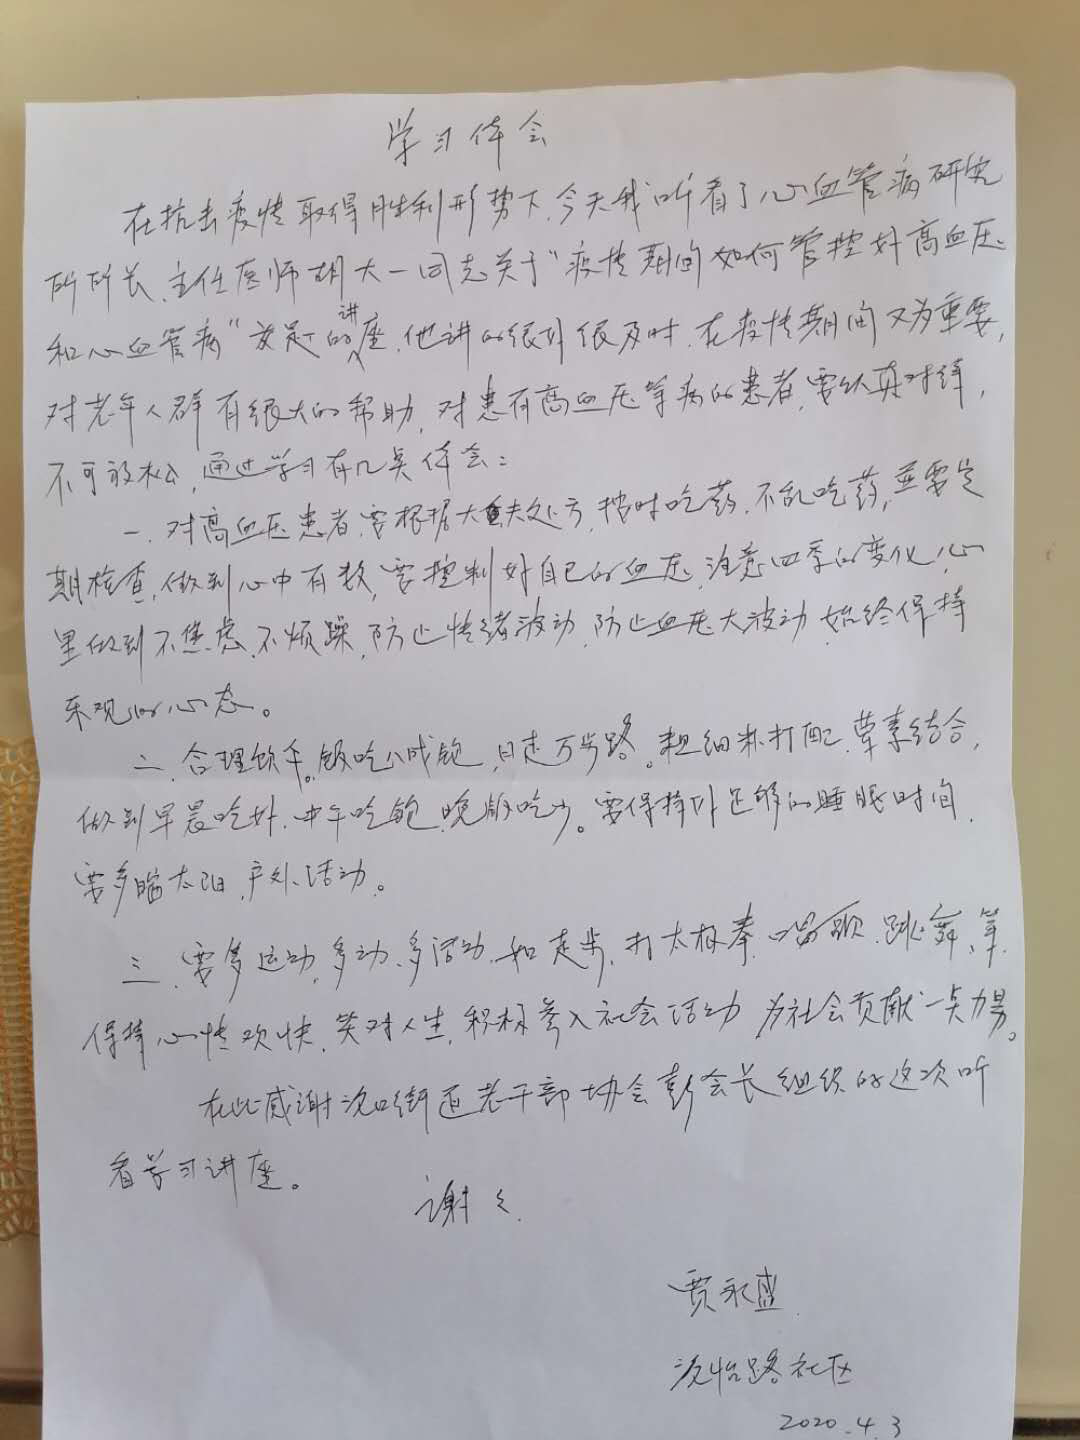 学习体会
在抗击疫情取得胜利形势下,今天我听看了心血管病研究
所所长、主任医师胡大一同志关于"疫情期间如何管控好高血压
和心血管病"的讲座,他讲的很好很及时,在疫情期间尤为重要,
对老年人群有很大的帮助,对患有高血压等病的患者,要认真对待,
不可放松,通过学习有几点体会:
一、对高血压患者,要根据大夫处方,按时吃药,不乱吃药,并要定
期检查,做到心中有数,要控制好自己的血压,注意四季的变化,心
里做到不焦虑、不烦躁,防止情绪波动,防止血压大波动,始终保持
乐观的心态。
二、合理饮食。饭吃八成饱,日走万步路。粗细粮打配,荤素结合,
做到早晨吃好,中午吃饱,晚饭吃少。要保持好足够的睡眠时间,
要多晒太阳,户外活动。
三、要多运动,多动、多活动,如走步,打太极拳、唱歌、跳舞、等,
保持心情欢快,笑对人生,积极参入社会活动,为社会贡献一点力量。
在此感谢街道老干部协会彭会长组织的这次听
看学习讲座。
谢谢
贾永盛
怡路社区
2020.4.3